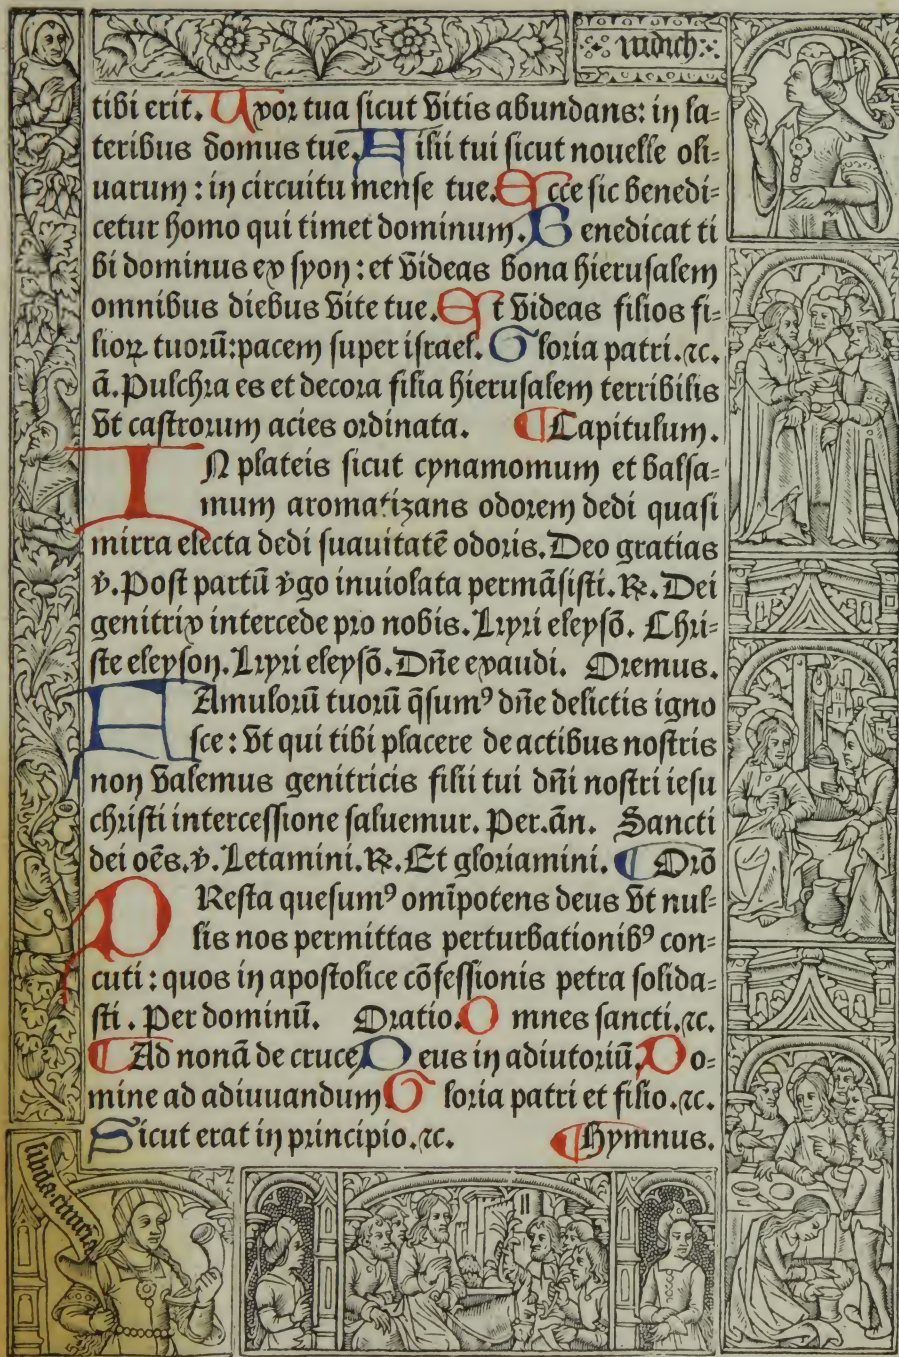 iudich
tibi erit. Uxor tua sicut vitis abundans: in la=
teribus domus tue. Filii tui sicut nouelle oli=
uarum : in circuitu mense tue. Ecce sic benedi=
cetur homo qui timet dominum. Benedicat ti
bi dominus ex syon : et videas bona hierusalem
omnibus diebus vite tue. Et videas filios fi=
lioꝝ tuorū: pacem super israel. Gloria patri. ⁊c.
ā. Pulchra es et decora filia hierusalem terribilis
vt castrorum acies ordinata. ¶ Capitulum.
IN plateis sicut cynamomum et balsa=
mum aromatizans odorem dedi quasi
mirra electa dedi suauitatē odoris. Deo gratias
v̇. Post partū v̇go inuiolata permāsisti. ℟. Dei
genitrix intercede pro nobis. Kyri eleysō. Chri=
ste eleyson. Kyri eleysō. Dn̄e exaudi. Oremus.
FAmulorū tuorū q̄sumꝰ dn̄e delictis igno
sce : vt qui tibi placere de actibus nostris
non valemus genitricis filii tui dn̄i nostri iesu
christi intercessione saluemur. Per. ān. Sancti
dei oēs. v̇. Letamini. ℟. Et gloriamini. ¶ Orō
PResta quesumꝰ omīpotens deus vt nul=
lis nos permittas perturbationibꝰ con=
cuti : quos in apostolice cōfessionis petra solida=
sti . Per dominū. Oratio. Omnes sancti. ⁊c.
¶ Ad nonā de cruce. Deus in adiutoriū. Do=
mine ad adiuuandum. Gloria patri et filio. ⁊c.
Sicut erat in principio. ⁊c. ¶ Hymnus.